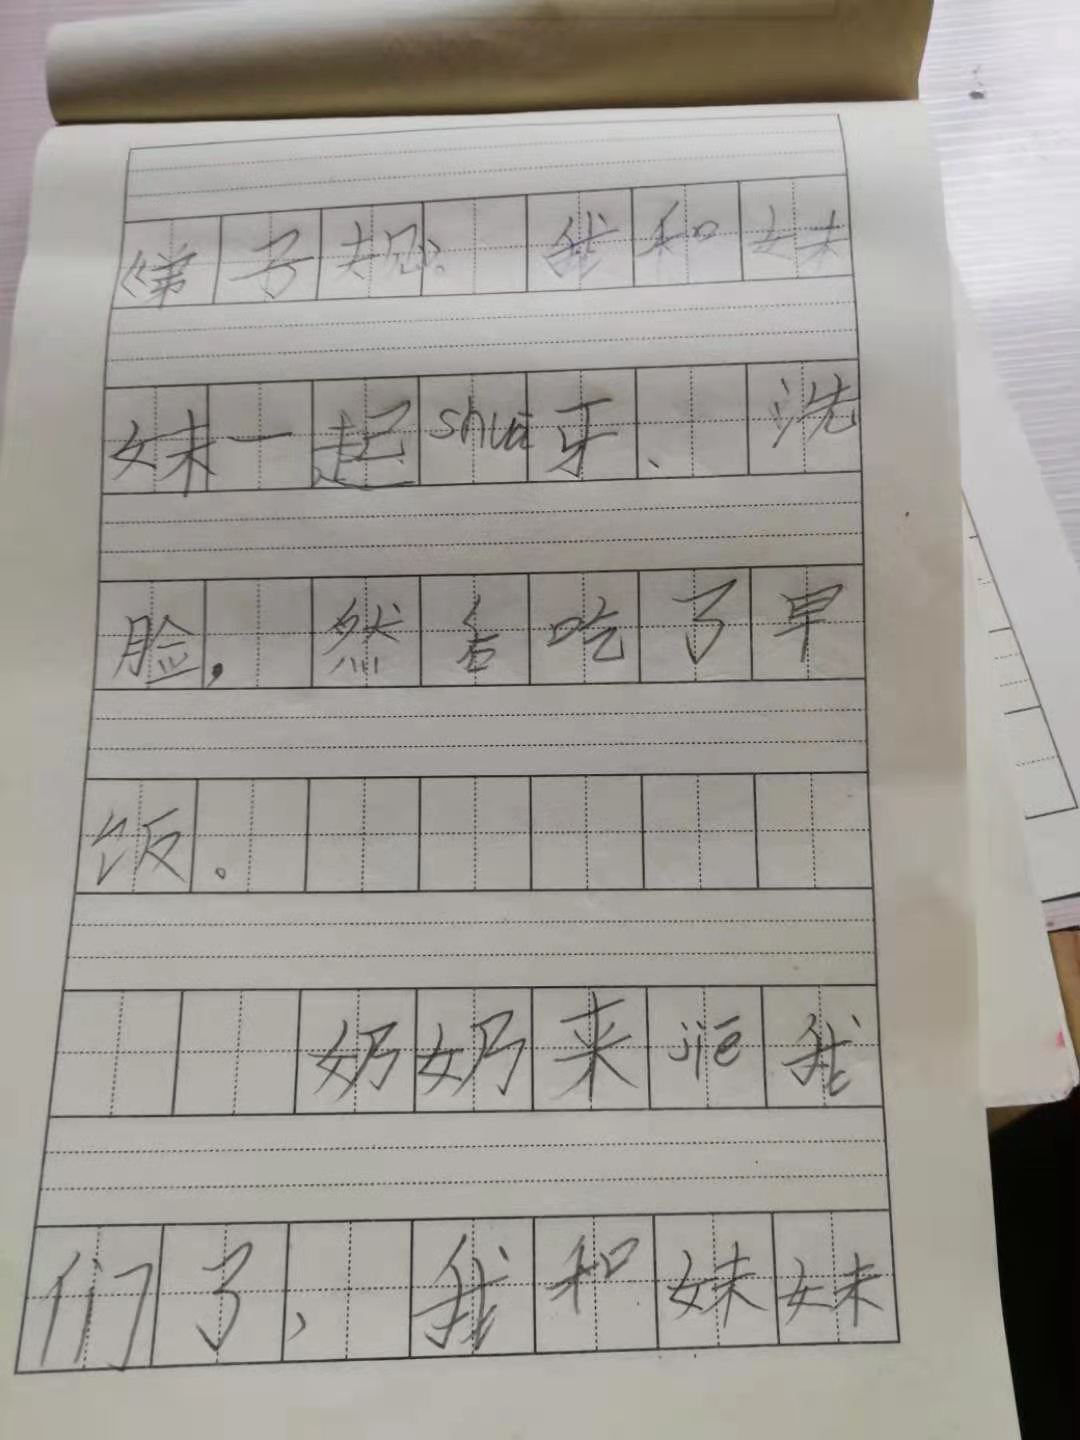 《弟子规》。我和妹
妹一起shuā牙、洗
脸,然后吃了早
饭。
奶奶来jiē我
们了,我和妹妹